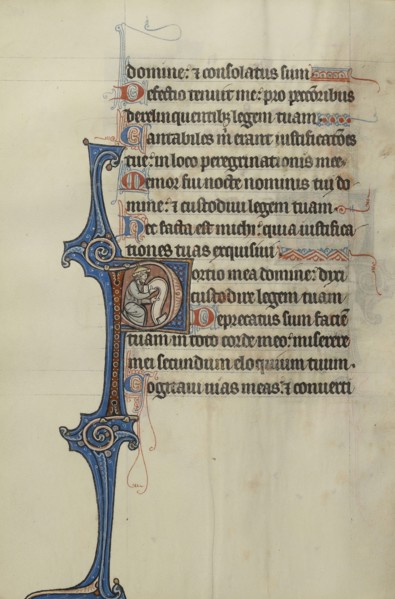 domine: ⁊ consolatus sum
Defectio tenuit me: pro peccatoribus
derelinquentibꝫ legem tuam.
Cantabiles m̄ erant iustificatōes
tue: in loco peregrinationis mee.
Memor fui nocte nominis tui do
mine: ⁊ custodiui legem tuam.
Hec facta est michi: quia iustifica
tiones tuas exquisiui
Portio mea domine: dixi
custodire legem tuam.
Deprecatus sum faciē
tuam in toto corde meo: miserere
mei secundum eloquium tuum.
Cogitaui uias meas: ⁊ conuerti